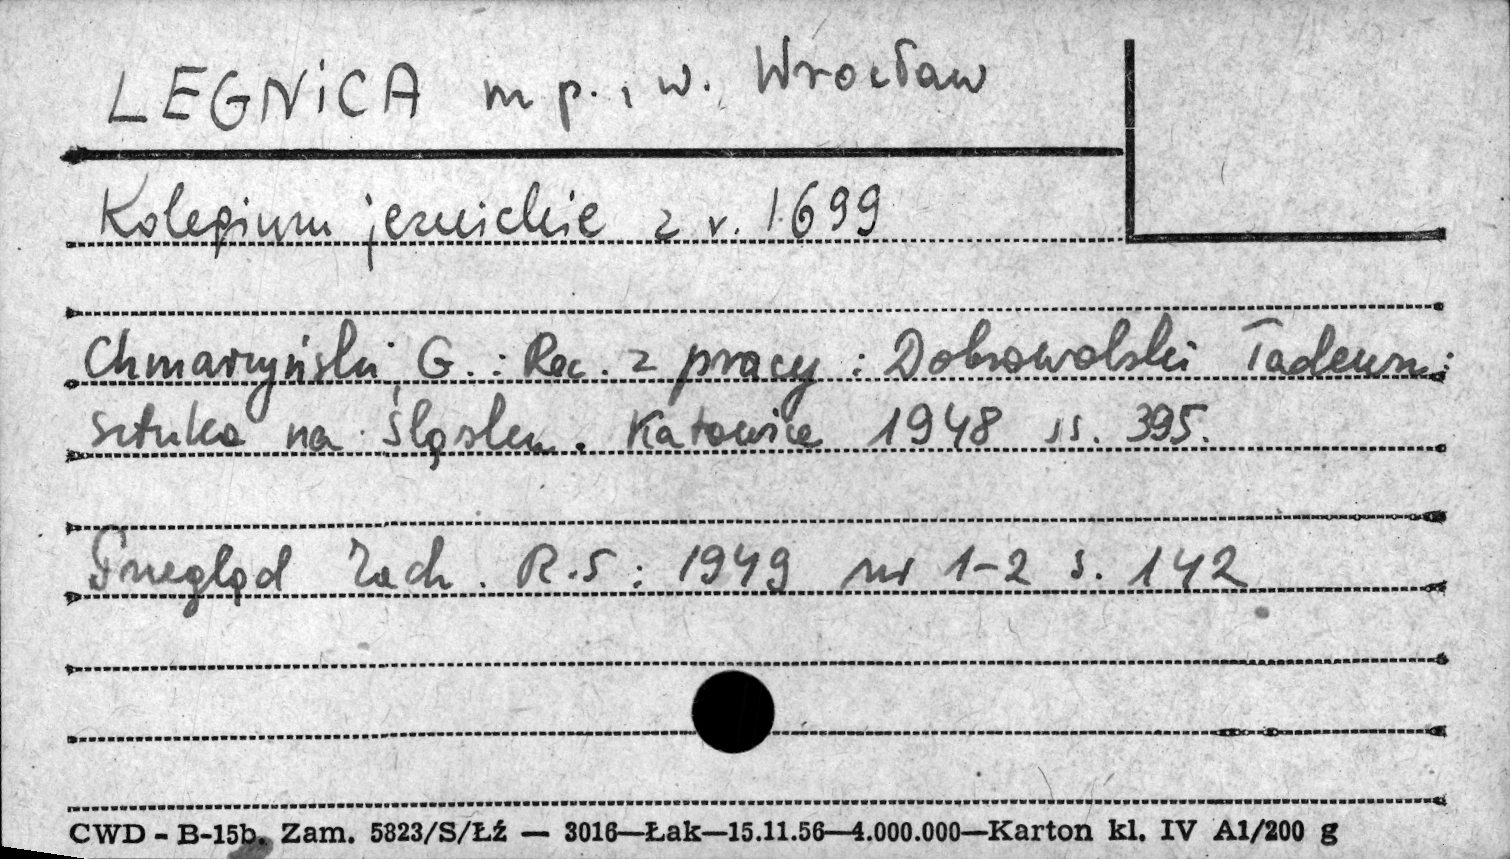 LEGNICA m p., w. Wrocław
Kolegium jezuickie z r. 1699
Chmarzyński, G. : Rec. z pracy : Dobrowolski Tadeusz :
Sztuka na Śląsku. Katowice 1948 ss. 395.
Przegląd Zach. R.5 : 1949 nr 1-2 s. 142
CWD - B-15b. Zam. 5823/S/Łź — 3016—Łak—15.11.56—4.000.000—Karton kl. IV A1/200 g